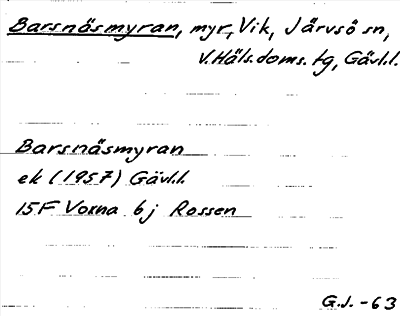 Barsnäsmyran, myr, Vik, Järvsö sn,
V. Häls. doms. tg, Gävl.l.
Barsnäsmyran
ek (1957) Gävl.l.
15F Voxna 6j Rossen
G.J. -63